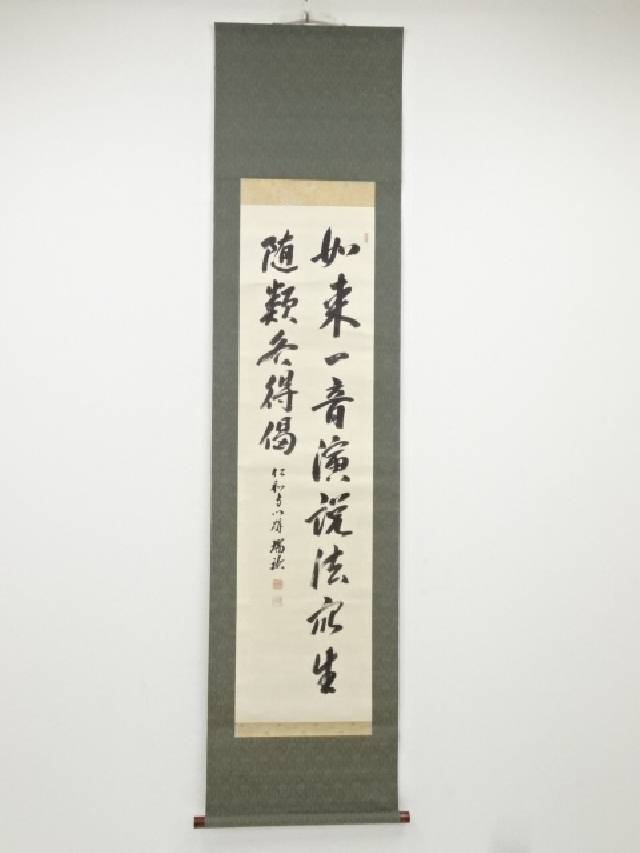 如来一音演説法衆生
随類各得偈
仁和寺